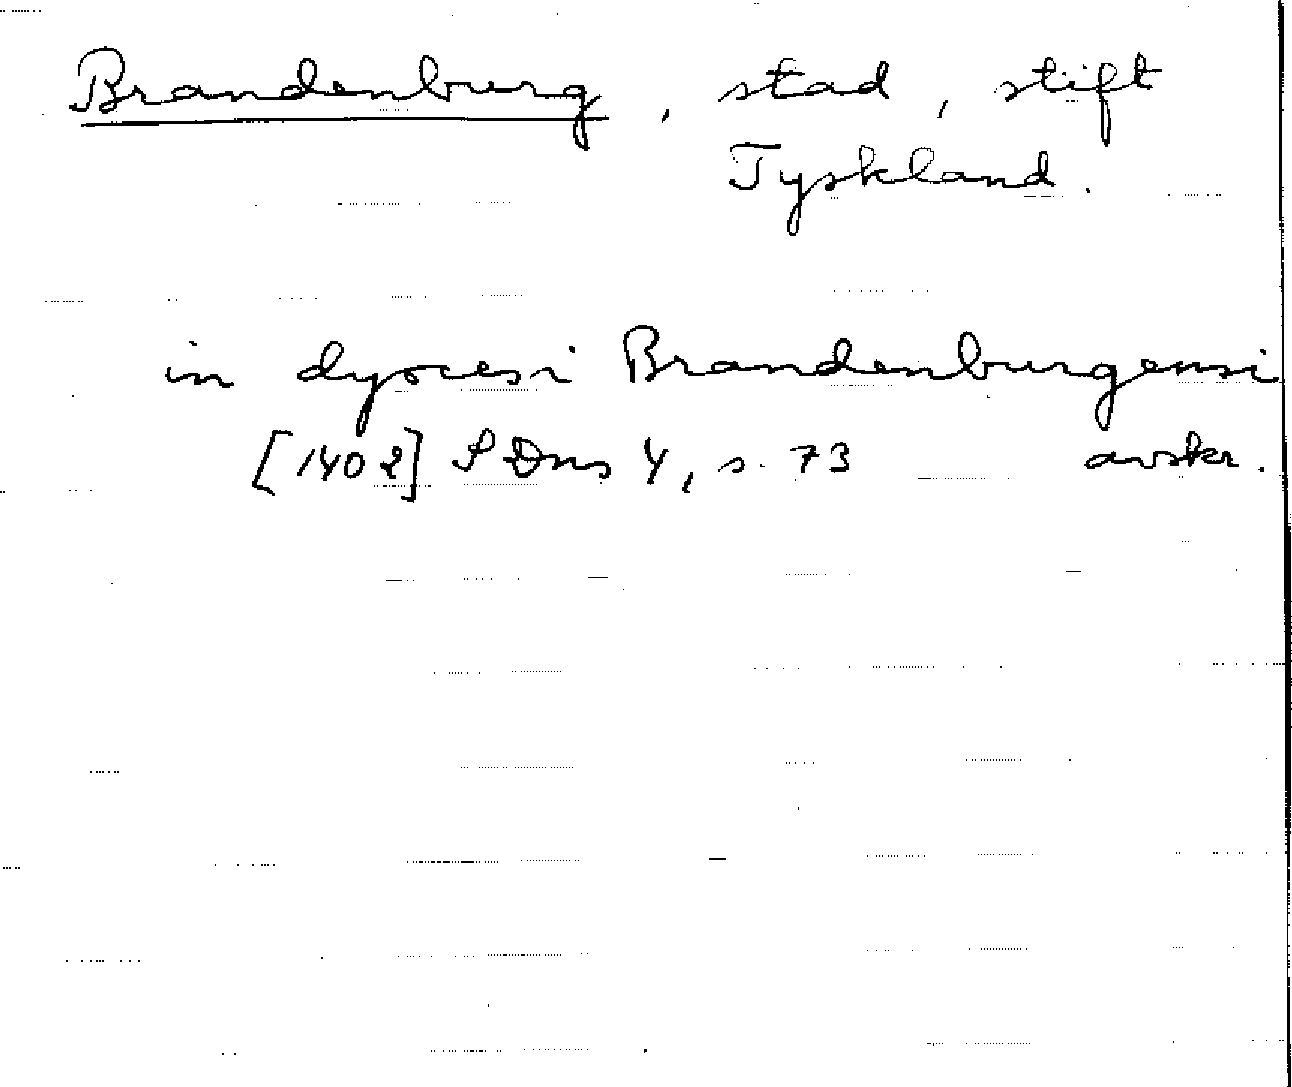 Brandenburg, stad, stift
Tyskland.
in dyocesi Brandenburgensi
[1402] SDns 4, s. 73 avskr.